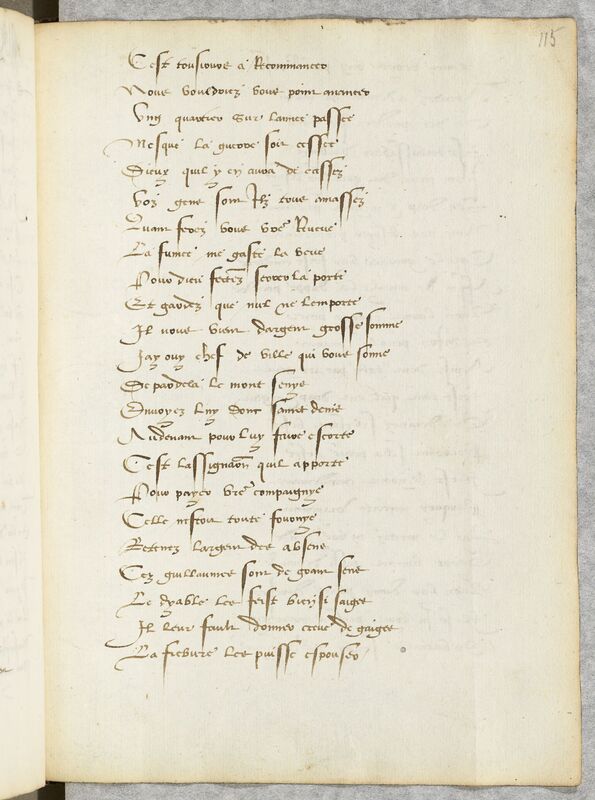 115
Cest tousiours a Recommancer
Nous vouldriez vous point avancer
Ung quartier sur lannee passee
Mesque la guerre soit cessee
Dieux quil y en aura de cassez
Voz gens sont Ilz tous amassez
Quant ferez vous vre Reveue
La fumee me gaste la veue
Pour dieu faictes serrer la porte
Et gardez que nul ne lemporte
Il nous vient dargent grosse somme
Jay ouy chef de ville qui vous somme
De pardela le mont senys
Envoyez luy donc sainct denis
Audevant pour luy faire escorte
Cest lassignaon quil apporte
Pour payer vre compaignye
Celle nestoit toute fournye
Retenez largent des absens
Cez guillaumes sont de grant sens
Le dyable les feist bien si saiges
Il leur fault donner creue de gaiges
La fiebvre les puisse espouser